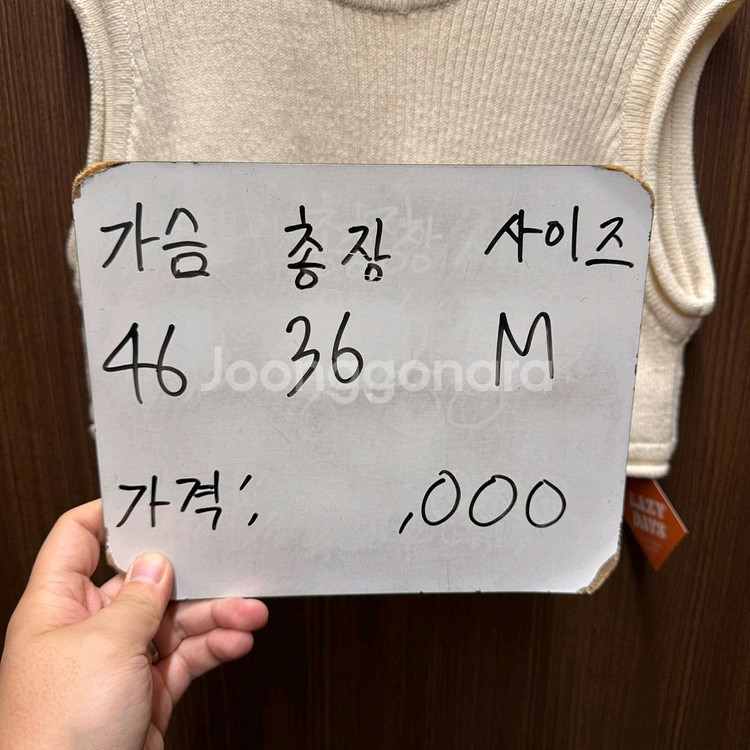 가슴 총장 사이즈
46 36 M
Joonggonara
가격; ,000
LAZY
DAYS